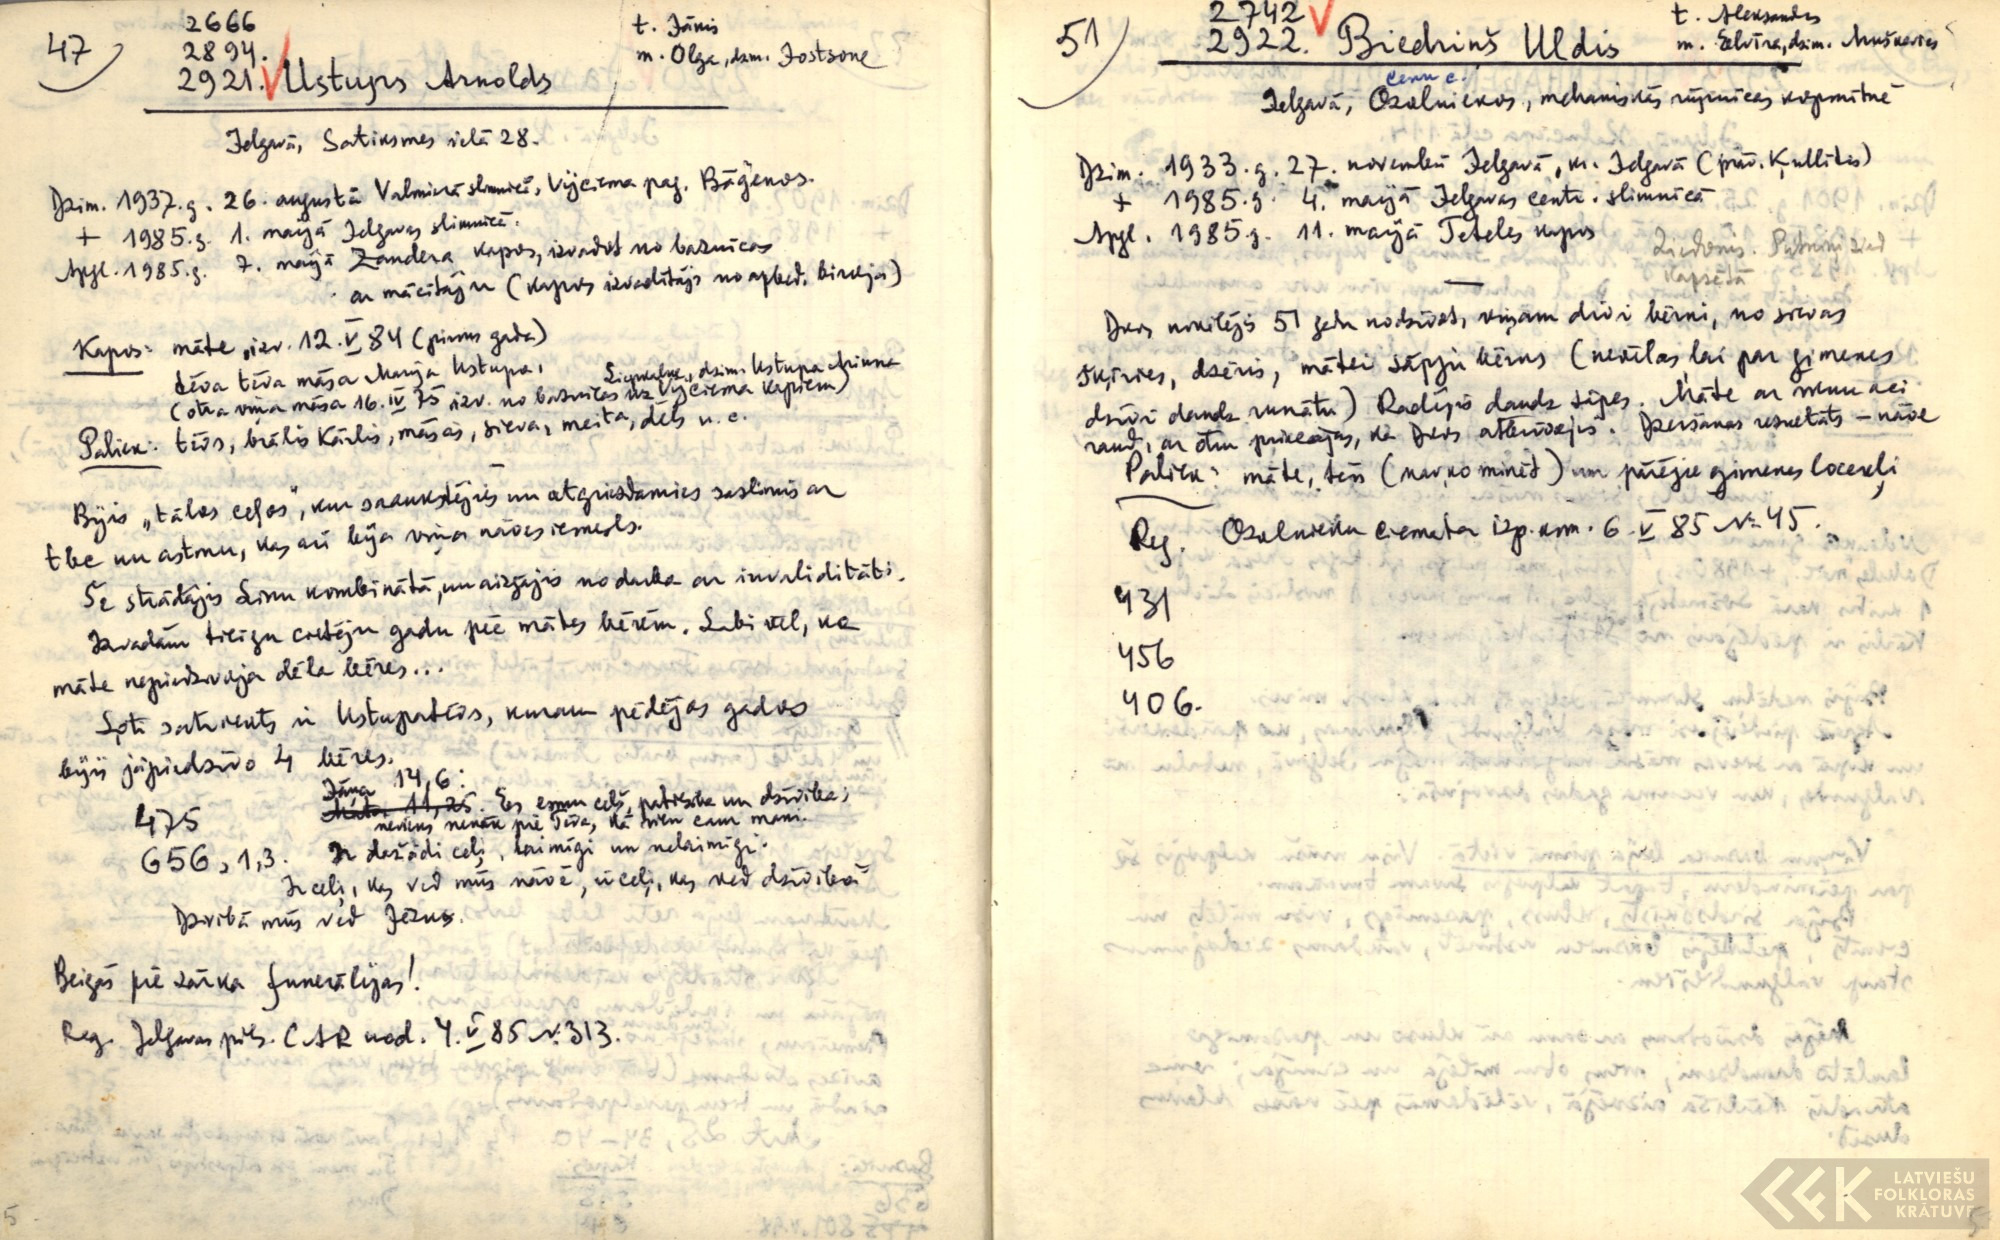 47
2666
2894.
2921. Ustups Arnolds
t. Jānis
m. Olga, dzim. Jostsone
Jelgavā, Satiksmes ielā 28.
Dzim. 1937.g. 26. augustā Valmierā slimnīcā, Vijciema pag. Bāģenos.
+ 1985.g. 1. maijā Jelgavas slimnīcā.
Apgl. 1985.g. 7. maijā Zandera kapos, izvadot no baznīcas
ar mācītāju (kapos izvadītājs no apbed. biroja)
Kapos: māte, izv. 12.V 84 (pirms gada)
tēva tēva māsa Marija Ustupa,
(otra viņa māsa 16.IV 75 izv. no baznīcas uz Vijciema kapiem)
dzim. Ustupa Minna
Paliek: tēvs, brālis Kārlis, māsas, sieva, meita, dēls u.c.
Bijis „tālos ceļos", kur saaukstējies un atgriezdamies saslimis ar
tbc un astmu, kas arī bija viņa nāves iemesls.
Še strādājis Linu kombinātā, un aizgājis no darba ar invaliditāti.
Izvadām ticīgu cietēju gadu pēc mātes bērēm. Labi vēl, ka
māte nepiedzīvoja dēla bēres...
Ļoti satriekts ir Ustupa tēvs, kuram pēdējos gados
bijis jāpiedzīvo 4 bēres.
475
Jāņa 14,6:
11,25. Es esmu ceļš, patiesība un dzīvība;
neviens nenāk pie Tēva, kā vien caur mani.
656, 1,3. Ir dažādi ceļi, laimīgi un nelaimīgi.
Ir ceļi, kas ved mūs nāvē, ir ceļi, kas ved dzīvībā
Dzīvībā mūs ved Jēzus.
Beigās pie zārka funerālijas!
Reg. Jelgavas pils. CAR nod. 4.V 85 Nr. 313.
51
2742
2922. Biedriņš Uldis
t. Aleksandrs
m. Elvīra, dzim.
Jelgavā, Ozolniekos, mehaniskās rūpnīcas kopmītnē
ciem c.
Dzim. 1933.g. 27. novembrī Jelgavā, kr. Jelgavā (prāv. Ķullītis)
+ 1985.g. 4. maijā Jelgavas centr. slimnīcā
Apgl. 1985.g. 11. maijā Teteles kapos
kapsētā
Īkos nokļējis 51 gadu nodzīvot, viņam divi bērni, no sievas
šķīries, dzēris, mātei sāpju bērns (nevēlas, lai par ģimenes
dzīvi daudz runātu) Radījis daudz sāpes. Māte ar
raud, ar
Dzeršanas rezultāts – nāve
Paliek: māte, tēvs (nav ko minēt) un pārējie ģimenes locekļi
Reg. Ozolnieku ciemata izp. kom. 6.V 85 Nr. 45.
431
456
406.
5
LATVIEŠU
FOLKLORAS
KRĀTUVE